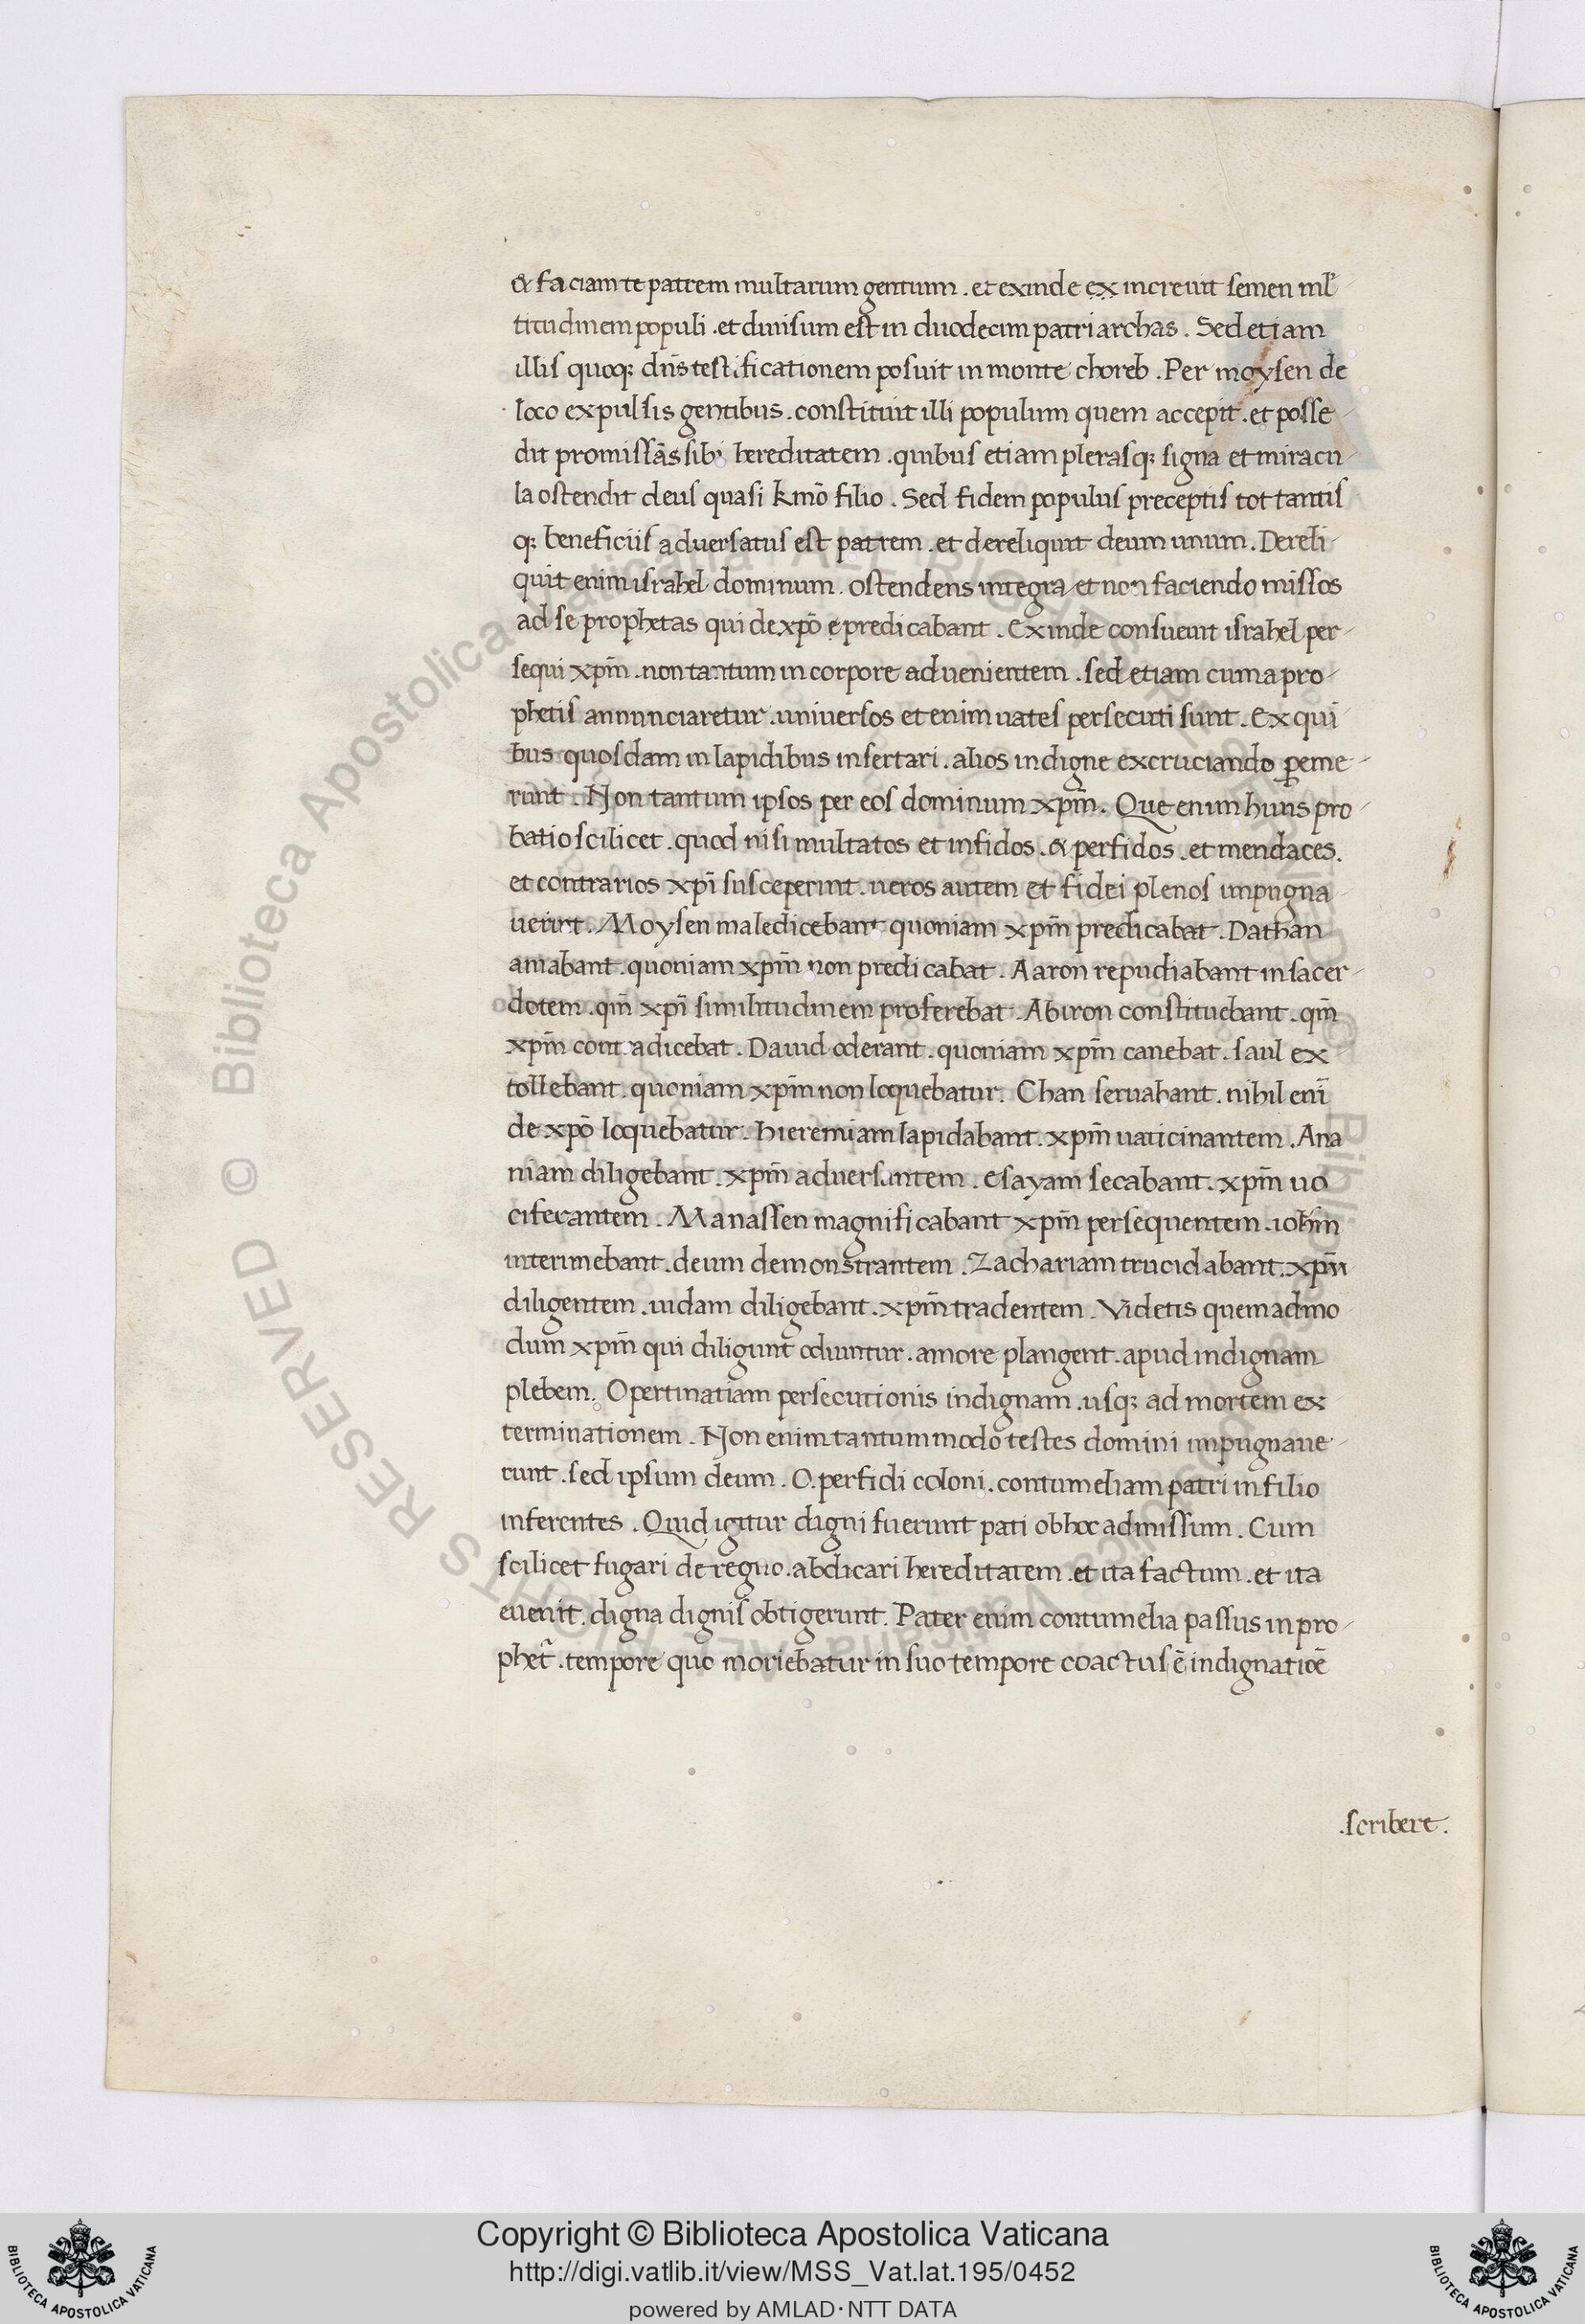 & faciam te patrem multarum gentium . et exinde ex increuit semen ml̄
titudinem populi . et diuisum est in duodecim patriarchas . Sed etiam
illis quoq; dn̄s testificationem posuit in monte choreb . Per moysen de
loco expulsis gentibus . constituit illi populum quem accepit . et posse
dit promissā̄s sibi hereditatem . quibus etiam plerasq; signa et miracu
la ostendit deus quasi kmō filio . Sed fidem populus preceptis tot tantis
q; beneficiis aduersatus est patrem . et dereliquit deum unum . Dereli
quit enim israhel dominum . ostendens integra et non faciendo missos
ad se prophetas qui de xpō e predicabant . Exinde consueuit israhel per
sequi xpm̄ . non tantum in corpore aduenientem . sed etiam cum a pro
phetis annunciaretur . uniuersos etenim uates persecuti sunt . Ex qui
bus quosdam in lapidibus insertari . alios indigne excruciando ꝑeme
runt . Non tantum ipsos per eos dominum xpm̄ . Que enim huius pro
batio scilicet . quod nisi multatos et infidos . & perfidos . et mendaces .
et contrarios xpī susceperint . ueros autem et fidei plenos impugna
uerint . Moysen maledicebant quoniam xpm̄ predicabat . Dathan
amabant . quoniam xpm̄ non predicabat . Aaron repudiabant in sacer
dotem . qm̄ xpī similitudinem proferebat . Abiron constituebant . qm̄
xpm̄ contradicebat . Dauid oderant . quoniam xpm̄ canebat . saul ex
tollebant . quoniam xpm̄ non loquebatur . Chan seruabant . nihil enī
de xpō loquebatur . hieremiam lapidabant . xpm̄ uaticinantem . Ana
niam diligebant . xpm̄ aduersantem . esayam secabant . xpm̄ uo
ciferantem . Manassen magnificabant xpm̄ persequentem . ioh̄m
interimebant . deum demonstrantem . Zachariam trucidabant . xpm̄
diligentem . iudam diligebant . xpm̄ tradentem . Videtis quemadmo
dum xpm̄ qui diligunt odiuntur . amore plangent . apud indignam
plebem . O pertinatiam persecutionis indignam . usq; ad mortem ex
terminationem . Non enim tantummodo testes domini impugnaue
runt . sed ipsum deum . O . perfidi coloni . contumeliam patri in filio
inferentes . Quid igitur digni fuerunt pati ob hoc admissum . Cum
scilicet fugari de regno . abdicari hereditatem . et ita factum . et ita
euenit . digna dignis obtigerunt . Pater enim contumelia passus in pro
phet̄ . tempore quo moriebatur in suo tempore coactus ē indignatiōē
. scribere .
© Biblioteca Apostolica Vaticana ALL RIGHTS RESERVED
Copyright © Biblioteca Apostolica Vaticana
http://digi.vatlib.it/view/MSS_Vat.lat.195/0452
powered by AMLAD·NTT DATA
BIBLIOTECA APOSTOLICA VATICANA
BIBLIOTECA APOSTOLICA VATICANA